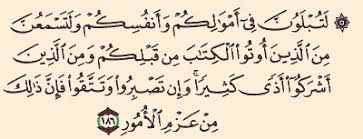 ۞ لَتُبْلَوُنَّ فِىٓ أَمْوَٰلِكُمْ وَأَنفُسِكُمْ وَلَتَسْمَعُنَّ
مِنَ ٱلَّذِينَ أُوتُوا۟ ٱلْكِتَٰبَ مِن قَبْلِكُمْ وَمِنَ ٱلَّذِينَ
أَشْرَكُوٓا۟ أَذًى كَثِيرًا ۚ وَإِن تَصْبِرُوا۟ وَتَتَّقُوا۟ فَإِنَّ ذَٰلِكَ
مِنْ عَزْمِ ٱلْأُمُورِ ١٨٦